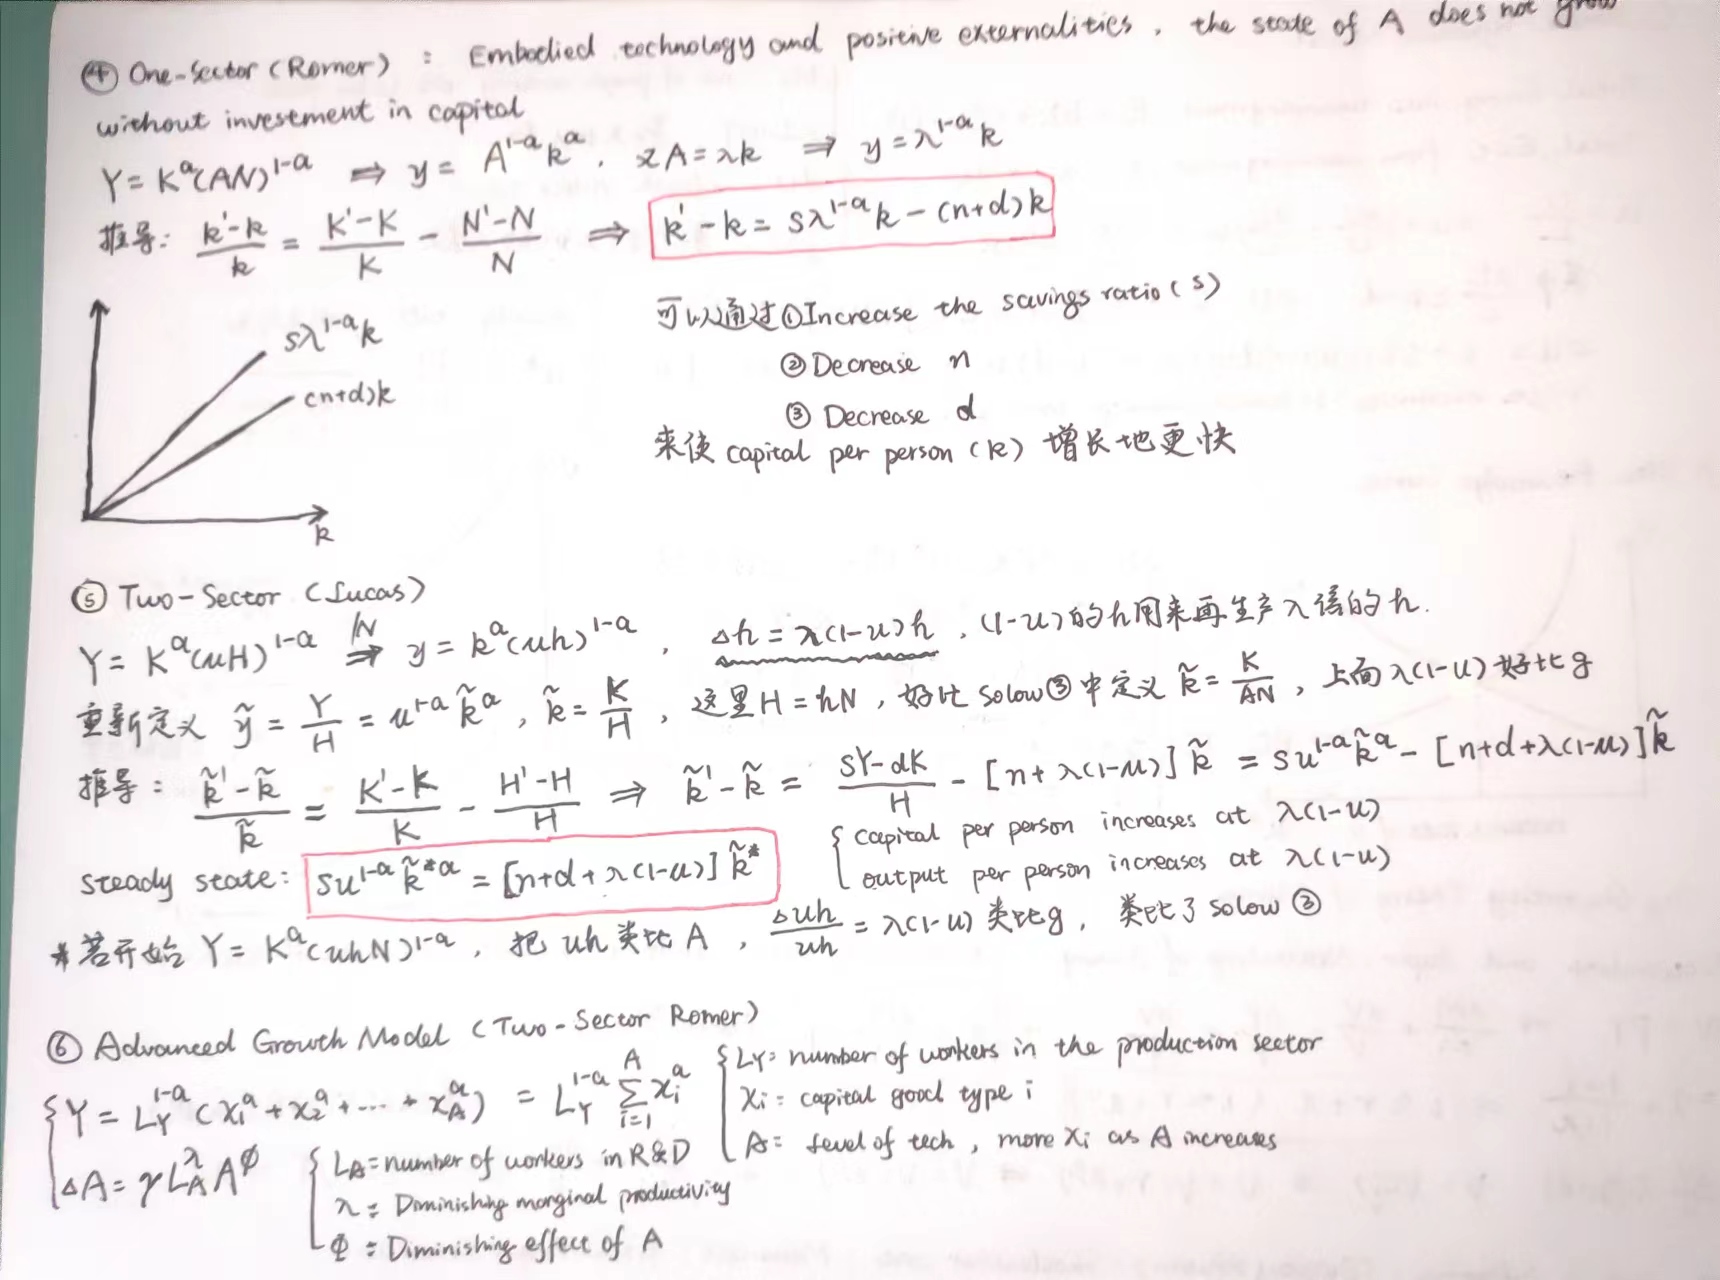 ④ One-Sector (Romer) : Embodied technology and positive externalities, the state of A does not grow
without investment in capital
Y = K^α(AN)^{1-α} ⇒ y = A^{1-α} k^α, 又A = λk ⇒ y = λ^{1-α} k
推导: (k'-k)/k = (K'-K)/K - (N'-N)/N ⇒ k'-k = sλ^{1-α} k - (n+d)k
sλ^{1-α} k
(n+d)k
k
可以通过①Increase the savings ratio (s)
② Decrease n
③ Decrease d
来使 capital per person (k) 增长地更快
⑤ Two-Sector (Lucas)
Y = K^α(uH)^{1-α} ⇒(/N) y = k^α(uh)^{1-α}, Δh = λ(1-u)h, (1-u)的h用来再生产λ倍的h.
重新定义 ỹ = Y/H = u^{1-α} k̃^α, k̃ = K/H, 这里H = hN, 好比Solow③中定义 k̃ = K/AN, 上面λ(1-u)好比g
推导: (k̃'-k̃)/k̃ = (K'-K)/K - (H'-H)/H ⇒ k̃'-k̃ = (sY-dK)/H - [n+λ(1-u)] k̃ = su^{1-α} k̃^α - [n+d+λ(1-u)] k̃
steady state: su^{1-α} k̃*^α = [n+d+λ(1-u)] k̃*
{ capital per person increases at λ(1-u)
output per person increases at λ(1-u)
* 若开始 Y = K^α(uhN)^{1-α}, 把uh类比A, Δuh/uh = λ(1-u) 类比g, 类比了Solow ③
⑥ Advanced Growth Model (Two-Sector Romer)
{ Y = L_Y^{1-α} (x_1^α + x_2^α + ... + x_A^α) = L_Y^{1-α} Σ_{i=1}^{A} x_i^α
{ L_Y: number of workers in the production sector
X_i = capital good type i
A = level of tech, more X_i as A increases
ΔA = γ L_A^λ A^φ
{ L_A = number of workers in R&D
λ = Diminishing marginal productivity
Φ = Diminishing effect of A